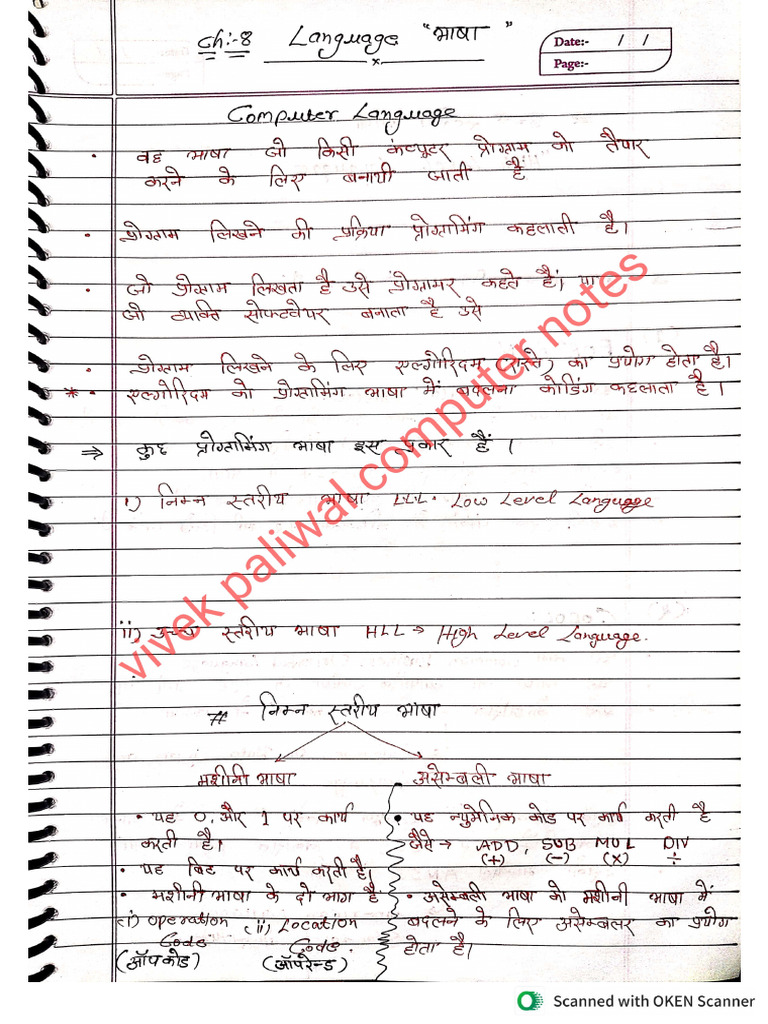 Ch:-8 Language "भाषा"
Date:- / /
Page:-
Computer Language
• वह भाषा जो किसी कंप्यूटर प्रोग्राम को तैयार
करने के लिए बनायी जाती है
• प्रोग्राम लिखने की प्रक्रिया प्रोग्रामिंग कहलाती है।
• जो प्रोग्राम लिखता है उसे प्रोग्रामर कहते हैं। या
जो व्यक्ति सोफ्टवेयर बनाता है उसे
• प्रोग्राम लिखने के लिए एल्गोरिदम (रास्ते) का प्रयोग होता है।
* • एल्गोरिदम को प्रोग्रामिंग भाषा में बदलना कोडिंग कहलाता है।
⇒ कुछ प्रोग्रामिंग भाषा इस प्रकार हैं।
i) निम्न स्तरीय भाषा LLL. Low Level Language
ii) उच्च स्तरीय भाषा HLL → High Level Language.
# निम्न स्तरीय भाषा
मशीनी भाषा
• यह 0, और 1 पर कार्य
करती है।
• यह बिट पर कार्य करती है।
• मशीनी भाषा के दो भाग है
(i) Operation (ii) Location
Code Code.
(ऑपकोड) (ऑपरेन्ड)
असेम्बली भाषा
• यह न्युमेनिक कोड पर कार्य करती है
जैसे → ADD, SUB MUL DIV
(+) (-) (×) ÷
• असेम्बली भाषा को मशीनी भाषा में
बदलने के लिए असेम्बलर का प्रयोग
होता है।
vivek paliwal computer notes
Scanned with OKEN Scanner